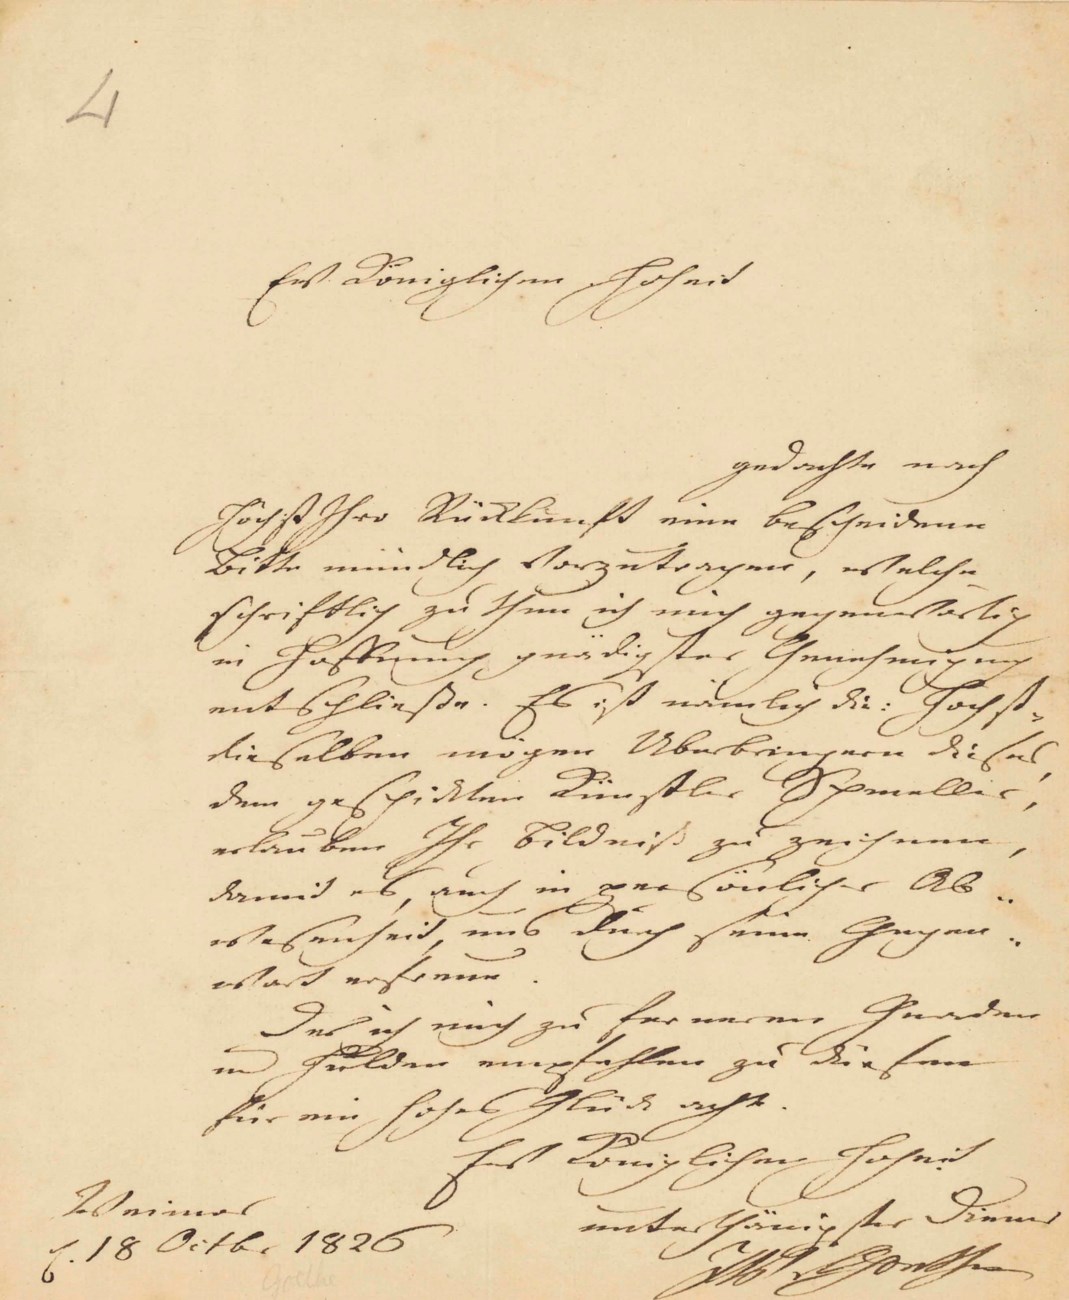 4
Ew. Königlichen Hoheit
gedachte nach
Höchst Ihro Rückkunft eine bescheidene
Bitte mündlich vorzutragen, welche
schriftlich zu thun ich mich gegenwärtig
in Hoffnung gnädigster Genehmigung
entschließe. Es ist nämlich die: Höchst-
dieselben mögen Überbringern dieses,
dem geschickten Künstler Schmeller,
erlauben Ihr Bildniß zu zeichnen,
damit es, auch in persönlicher Ab-
wesenheit, uns durch seine Gegen-
wart erfreue.
Der ich mich zu ferneren Gnaden
und Hulden empfehlen zu dürfen
für ein hohes Glück achte.
Ew. Königlichen Hoheit
unterthänigster Diener
JW v Goethe
Weimar
d. 18 Octbr 1826
Goethe